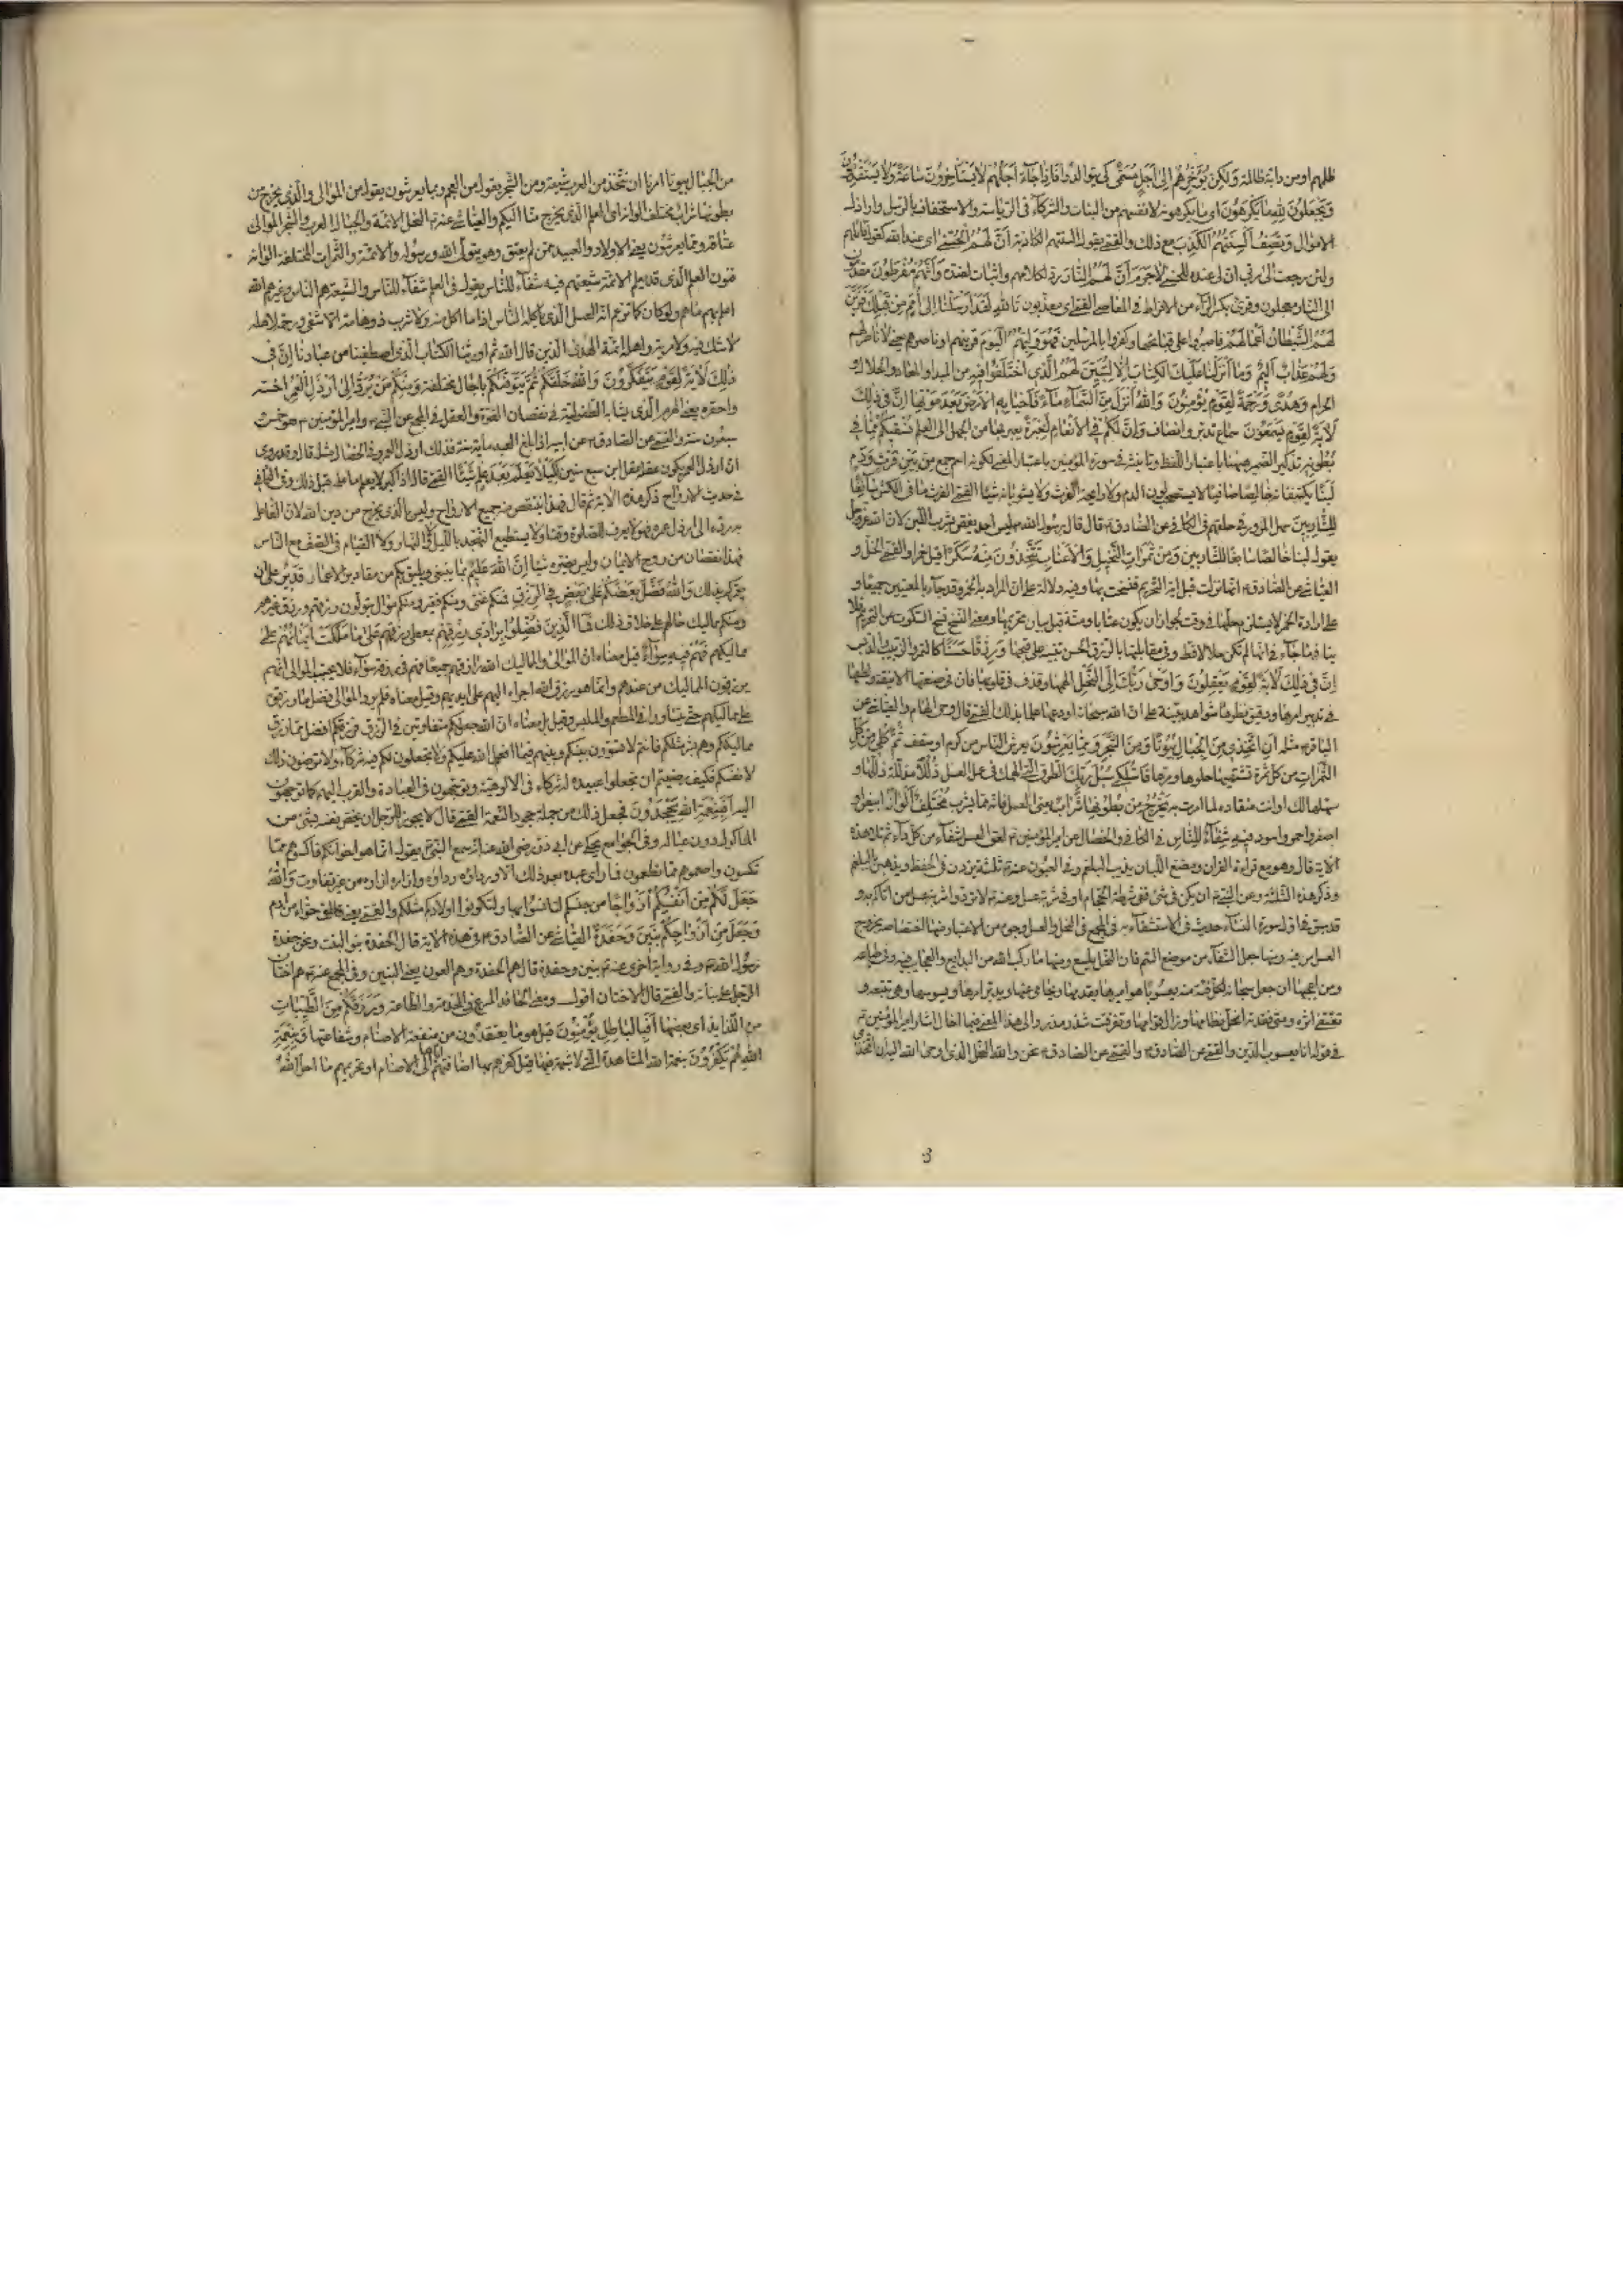 ظلمهم او من دابة ظالمة وَلٰكِنْ يُؤَخِّرُهُمْ إِلىٰ أَجَلٍ مُسَمًّى كى يتوالدوا فَإِذٰا جٰاءَ أَجَلُهُمْ لاٰ يَسْتَأْخِرُونَ سٰاعَةً وَلاٰ يَسْتَقْدِمُونَ
وَيَجْعَلُونَ لِلّٰهِ مٰا يَكْرَهُونَ اى ما يكرهونه لانفسهم من البنات والشركاء فى الرياسة والاستخفاف بالرسل واراذل
الاموال وَتَصِفُ أَلْسِنَتُهُمُ الْكَذِبَ مع ذلك والقمى يقول السنتهم الكاذبة أَنَّ لَهُمُ الْحُسْنىٰ اى عند الله كقول قائلهم
ولئن رجعت الى ربى ان لى عنده للحسنى لاٰ جَرَمَ أَنَّ لَهُمُ النّٰارَ رد لكلامهم واثبات لضده وَأَنَّهُمْ مُفْرَطُونَ مقدمون
الى النار معجلون وقرئ بكسر الراء من الافراط فى المعاصى القمى اى معذبون تَاللّٰهِ لَقَدْ أَرْسَلْنٰا إِلىٰ أُمَمٍ مِنْ قَبْلِكَ فَزَيَّنَ
لَهُمُ الشَّيْطٰانُ أَعْمٰالَهُمْ فاصروا على قبائحها وكفروا بالمرسلين فَهُوَ وَلِيُّهُمُ الْيَوْمَ قرينهم او ناصرهم يعنى لا ناصر لهم
وَلَهُمْ عَذٰابٌ أَلِيمٌ وَمٰا أَنْزَلْنٰا عَلَيْكَ الْكِتٰابَ إِلاّٰ لِتُبَيِّنَ لَهُمُ الَّذِى اخْتَلَفُوا فِيهِ من المبدا والمعاد والحلال و
الحرام وَهُدىً وَرَحْمَةً لِقَوْمٍ يُؤْمِنُونَ وَاللّٰهُ أَنْزَلَ مِنَ السَّمٰاءِ مٰاءً فَأَحْيٰا بِهِ الْأَرْضَ بَعْدَ مَوْتِهٰا إِنَّ فِى ذٰلِكَ
لَآيَةً لِقَوْمٍ يَسْمَعُونَ سماع تدبر وانصاف وَإِنَّ لَكُمْ فِى الْأَنْعٰامِ لَعِبْرَةً يعبر بها من الجهل الى العلم نُسْقِيكُمْ مِمّٰا فِى
بُطُونِهِ تذكير الضمير ههنا باعتبار اللفظ وتانيثه فى سورة المؤمنين باعتبار المعنى لكونه اسم جمع مِنْ بَيْنِ فَرْثٍ وَدَمٍ
لَبَناً يكتنفانه خٰالِصاً صافيا لا يستصحب لون الدم ولا رايحة الفرث ولا يشوبانه شيئا القمى الفرث ما فى الكرش سٰائِغاً
لِلشّٰارِبِينَ سهل المرور فى حلقهم فى الكافى عن الصادق ع قال قال رسول الله ص ليس احد يغص بشرب اللبن لان الله عز وجل
يقول لبنا خالصا سائغا للشاربين وَمِنْ ثَمَرٰاتِ النَّخِيلِ وَالْأَعْنٰابِ تَتَّخِذُونَ مِنْهُ سَكَراً قيل خمرا والقمى الخل و
العياشى عن الصادق ع انها نزلت قبل اية التحريم فنسخت بها وفيه دلالة على ان المراد به الخمر وقد جاء بالمعنيين جميعا و
على ارادة الخمر لا يستلزم حلها فى وقت لجواز ان يكون عتابا ومنة قبل بيان تحريمها ومعنى النسخ نسخ السكوت عن التحريم فلا
ينافى ما جاء فى انها لم تكن حلالا قط وفى مقابلتها بالرزق الحسن تنبيه على قبحها وَرِزْقاً حَسَناً كالتمر والزبيب والدبس
إِنَّ فِى ذٰلِكَ لَآيَةً لِقَوْمٍ يَعْقِلُونَ وَأَوْحىٰ رَبُّكَ إِلَى النَّحْلِ الهمها وقذف فى قلوبها فان فى صنعتها الانيقة ولطفها
فى تدبير امرها ودقيق نظرها شواهد بينة على ان الله سبحانه اودعها علما بذلك القمى قال وحى الهام والعياشى عن
الباقر ع مثله أَنِ اتَّخِذِى مِنَ الْجِبٰالِ بُيُوتاً وَمِنَ الشَّجَرِ وَمِمّٰا يَعْرِشُونَ يعرش الناس من كرم او سقف ثُمَّ كُلِى مِنْ كُلِّ
الثَّمَرٰاتِ من كل ثمرة تشتهيها حلوها ومرها فَاسْلُكِى سُبُلَ رَبِّكِ الطرق التى الهمك فى عمل العسل ذُلُلاً مذللة ذللها و
سهلها لك او انت منقادة لما امرت به يَخْرُجُ مِنْ بُطُونِهٰا شَرٰابٌ يعنى العسل فانه مما يشرب مُخْتَلِفٌ أَلْوٰانُهُ ابيض و
اصفر واحمر واسود فِيهِ شِفٰاءٌ لِلنّٰاسِ فى الكافى والخصال عن امير المؤمنين ع لعق العسل شفاء من كل داء ثم تلا هذه
الاية قال وهو مع قراءة القران ومضغ اللبان يذيب البلغم وفى العيون عنه ع ثلثة يزدن فى الحفظ ويذهبن بالبلغم
وذكر هذه الثلثة وعن النبى ص ان يكن فى شئ شفاء ففى شرطة الحجام او فى شربة عسل وعنه ع لا تردوا شربة عسل من اتاكم بها و
قد سبق فى اول سورة النساء حديث فى الاستشفاء به فى المجمع فى النحل والعسل وجوه من الاعتبار منها اختصاصه بخروج
العسل من فيه ومنها جعل الشفاء من موضع السم فان النحل يلسع ومنها ما ركب الله من البدايع والعجايب فيه وفى طباعه
ومن اعجبها ان جعل سبحانه لكل فئة منه يعسوبا هو اميرها يقدمها ويحامى عنها ويدبر امرها ويسوسها وهى تتبعه و
تقتفى اثره ومتى فقدته انحل نظامها وزال قوامها وتفرقت شذر مذر والى هذا المعنى فيما اخال اشار امير المؤمنين ع
فى قوله انا يعسوب الدين والقمى عن الصادق ع نحن والله النحل الذى اوحى الله اليه ان اتخذى
من الجبال بيوتا امرنا ان نتخذ من العرب شيعة ومن الشجر يقول من العجم ومما يعرشون يقول من الموالى والذى يخرج من
بطونها شراب مختلف الوانه اى العلم الذى يخرج منا اليكم والعياشى عنه ع النحل الائمة والجبال العرب والشجر الموالى
عتاقه ومما يعرشون يعنى الاولاد والعبيد ممن لم يعتق وهو يتولى الله ورسوله والائمة والثمرات المختلف الوانه
فنون العلم الذى قد يعلم الائمة شيعتهم فيه شفاء للناس يقول فى العلم شفاء للناس والشيعة هم الناس وغيرهم الله
اعلم بهم ما هم ولو كان كما تزعم انه العسل الذى ياكله الناس اذا ما اكل منه ولا شرب ذو عاهة الا شفى
لا شك فيه ولا مرية واهله ائمة الهدى الذين قال الله ثم اورثنا الكتاب الذين اصطفينا من عبادنا إِنَّ فِى
ذٰلِكَ لَآيَةً لِقَوْمٍ يَتَفَكَّرُونَ وَاللّٰهُ خَلَقَكُمْ ثُمَّ يَتَوَفّٰكُمْ باجال مختلفة وَمِنْكُمْ مَنْ يُرَدُّ إِلىٰ أَرْذَلِ الْعُمُرِ اخسه
واحقره يعنى الهرم الذى يشابه الطفولية فى نقصان القوة والعقل فى المجمع عن النبى ص وامير المؤمنين ع هو خمس و
سبعون سنة والقمى عن الصادق ع عن ابيه اذا بلغ العبد ماية سنة فذلك ارذل العمر وفى الخصال مثله قال وقد روى
ان ارذل العمر يكون عقله عقل ابن سبع سنين لِكَيْلاٰ يَعْلَمَ بَعْدَ عِلْمٍ شَيْئاً القمى قال اذا كبر لا يعلم ما علمه قبل ذلك وفى الكافى
فى حديث الارواح ذكر هذه الاية ثم قال فهذا ينتقص منه جميع الارواح وليس بالذى يخرج من دين الله لان الفاعل
به رده الى ارذل عمره فهو لا يعرف للصلوة وقتا ولا يستطيع التهجد بالليل ولا بالنهار ولا القيام فى الصف مع الناس
فهذا نقصان من روح الايمان وليس يضره شيئا إِنَّ اللّٰهَ عَلِيمٌ بما ينبغى ويليق بكم من مقادير الاعمار قَدِيرٌ على ان
يعمركم بذلك وَاللّٰهُ فَضَّلَ بَعْضَكُمْ عَلىٰ بَعْضٍ فِى الرِّزْقِ فمنكم غنى ومنكم فقير ومنكم موال يتولون رزقهم ورزق غيرهم
ومنكم مماليك حالهم على خلاف ذلك فَمَا الَّذِينَ فُضِّلُوا بِرَادِّى رِزْقِهِمْ بمعطى رزقهم عَلىٰ مٰا مَلَكَتْ أَيْمٰانُهُمْ على
مماليكهم فَهُمْ فِيهِ سَوٰاءٌ قيل معناه ان الموالى والمماليك الله رازقهم جميعا فهم فى رزقه سواء فلا يحسب الموالى انهم
يرزقون المماليك من عندهم وانما هو رزق الله اجراه اليهم على ايديهم وقيل معناه فلم يرد الموالى فضل ما رزقوه
على مماليكهم حتى يتساووا فى المطعم والملبس وقيل بل معناه ان الله جعلكم متفاوتين فى الرزق فرزقكم افضل مما رزق
مماليككم وهم بشر مثلكم فانتم لا تسوون بينكم وبينهم فيما انعم الله عليكم ولا تجعلون لكم فيه شركاء ولا ترضون ذلك
لانفسكم فكيف رضيتم ان تجعلوا عبيده له شركاء فى الالوهية وتوجهون فى العبادة والقرب اليهم كما توجهون
اليه أَفَبِنِعْمَةِ اللّٰهِ يَجْحَدُونَ فجعل ذلك من جملة جحود النعمة القمى قال لا يجوز للرجل ان يخص نفسه بشئ من
الماكول دون عياله وفى الجوامع يحكى عن ابى ذر رضى الله عنه انه سمع النبى ص يقول انما هم اخوانكم فاكسوهم مما
تكسون واطعموهم مما تطعمون فما راى عبده بعد ذلك الا ورداؤه رداؤه وازاره ازاره من غير تفاوت وَاللّٰهُ
جَعَلَ لَكُمْ مِنْ أَنْفُسِكُمْ أَزْوٰاجاً من جنسكم لتانسوا بها ولتكون اولادكم مثلكم والقمى يعنى خلق حواء من ادم
وَجَعَلَ لَكُمْ مِنْ أَزْوٰاجِكُمْ بَنِينَ وَحَفَدَةً العياشى عن الصادق ع فى هذه الاية قال الحفدة بنو البنت ونحن حفدة
رسول الله ص وفى رواية اخرى عنه ع بنين وحفدة قال هم الحفدة وهم العون يعنى البنين وفى المجمع عنه ع هم اختان
الرجل على بناته والقمى قال الاختان اقول ومعنى الحافد المسرع فى الخدمة والطاعة وَرَزَقَكُمْ مِنَ الطَّيِّبٰاتِ
من اللذائذ اى بعضها أَفَبِالْبٰاطِلِ يُؤْمِنُونَ قيل هو ما يعتقدون من منفعة الاصنام وشفاعتها وَبِنِعْمَةِ
اللّٰهِ هُمْ يَكْفُرُونَ بنعمة الله المشاهدة التى لا شبهة فيها قيل كفرهم بها اضافتهم اياها الى الاصنام او تحريمهم ما احل الله